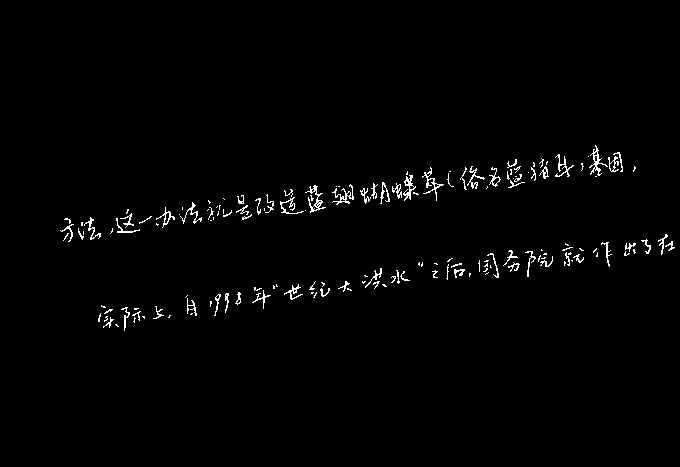 方法,这一办法就是改造蓝翅蝴蝶草(俗名蓝猪耳)基因,
实际上,自1998年“世纪大洪水”之后,国务院就作出了在